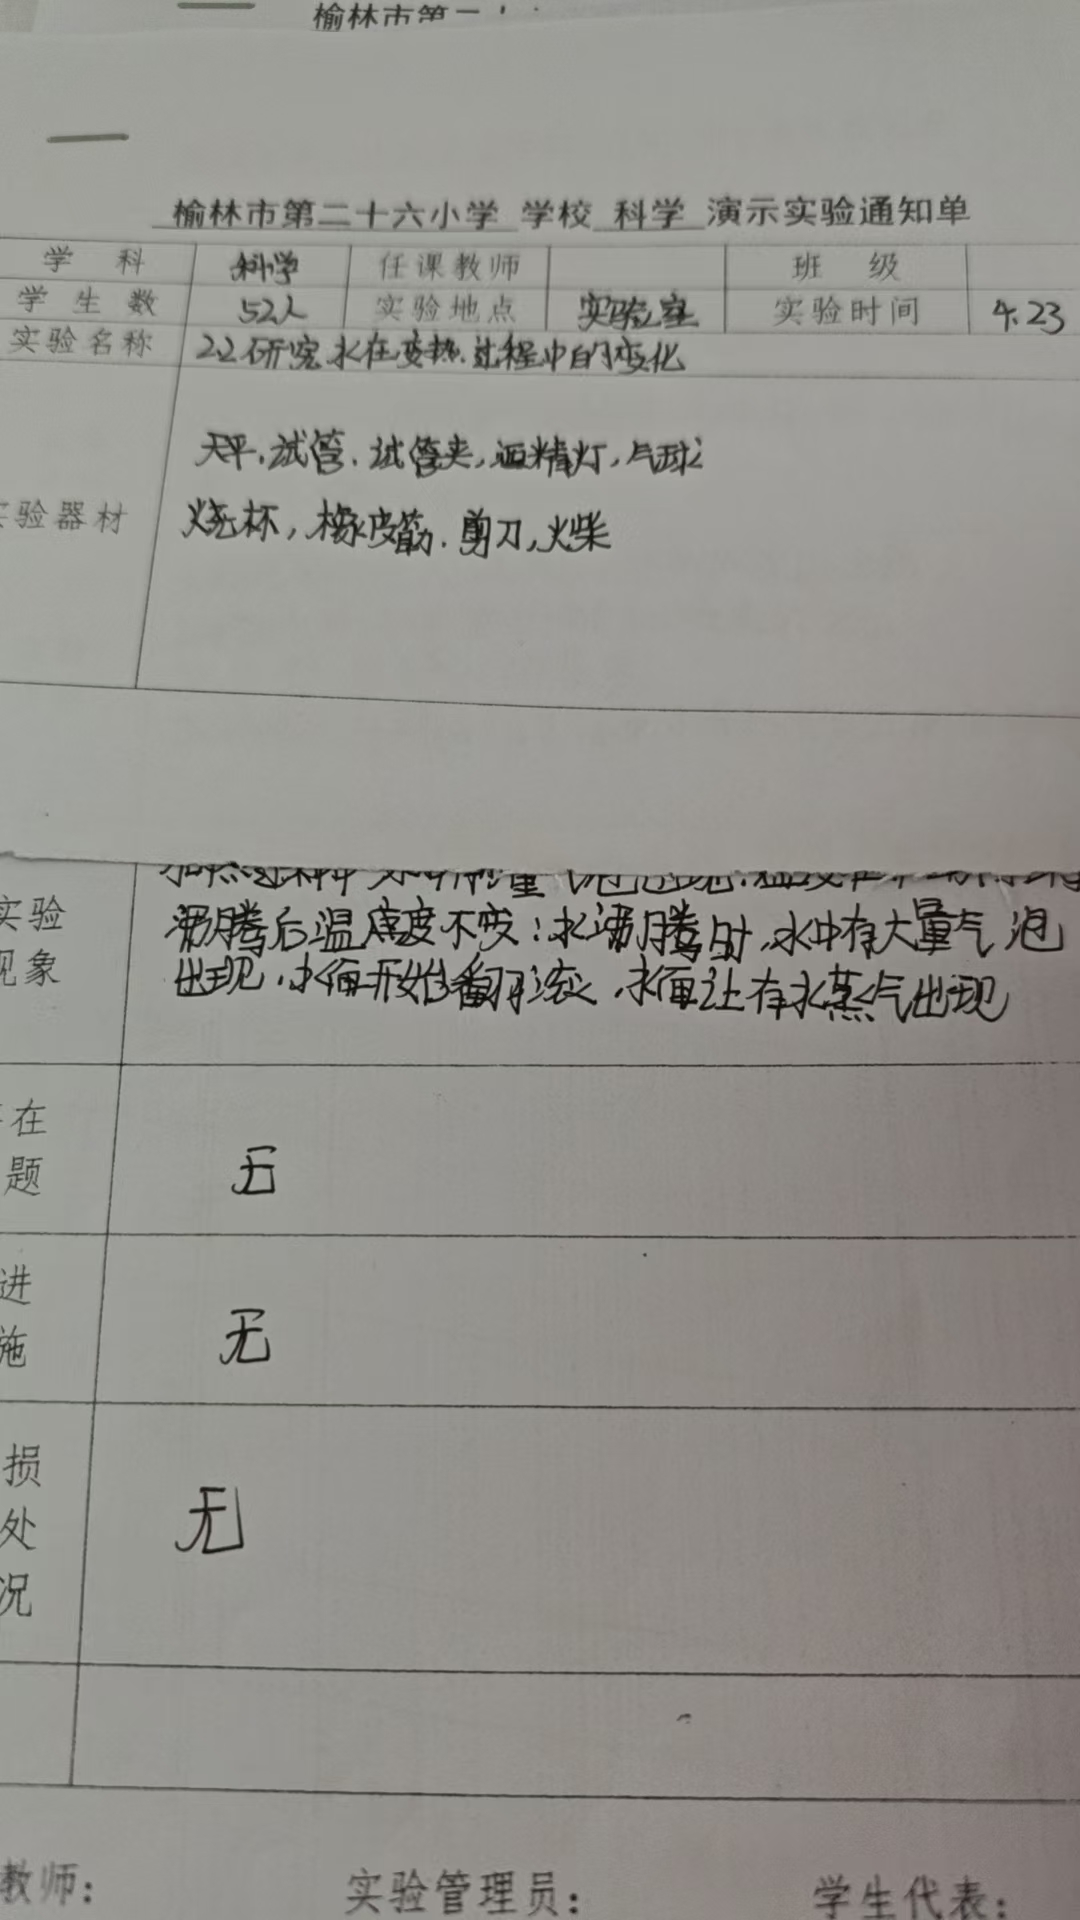 榆林市第二十
榆林市第二十六小学 学校 科学 演示实验通知单
学 科 科学 任课教师 班 级
学生数 52人 实验地点 实验室 实验时间 4.23
实验名称 22研究水在变热过程中的变化
天平、试管、试管夹,酒精灯,气球
验器材
烧杯,橡皮筋、剪刀,火柴
实验
现象
沸腾后温度不变:水沸腾时,水中有大量气泡
出现,水面开始翻滚,水面上有水蒸气出现
在
题
无
进
施
无
损
处
况
无
教师:
实验管理员:
学生代表: